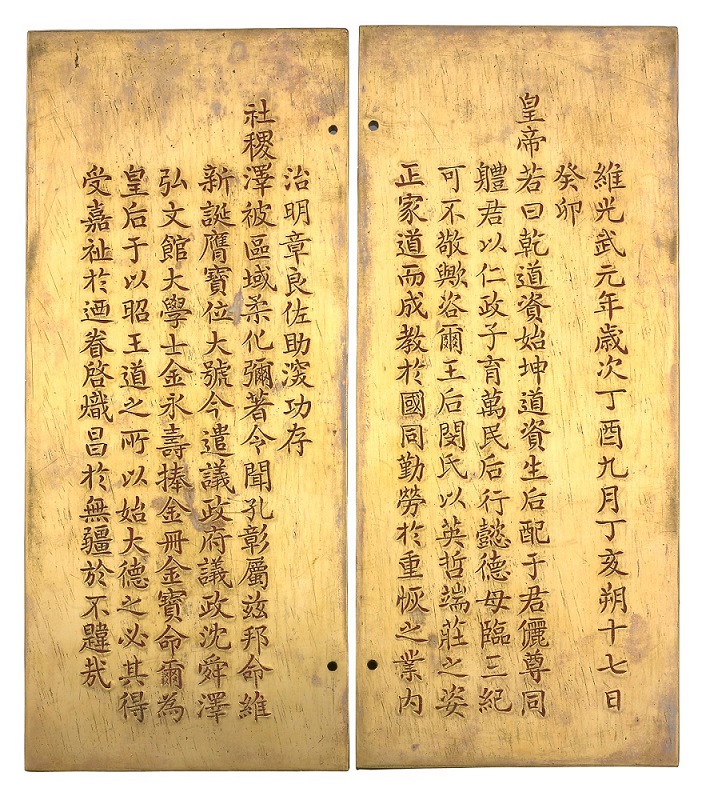 維光武元年歲次丁酉九月丁亥朔十七日
癸卯
皇帝若曰乾道資始坤道資生后配于君儷尊同
軆君以仁政子育萬民后行懿德母臨三紀
可不敬歟咨爾王后閔氏以英哲端莊之姿
正家道而成教於國同勤勞於重恢之業內
治明章良佐助深功存
社稷澤被區域柔化彌著令聞孔彰屬玆邦命維
新誕膺寶位大號今遣議政府議政沈舜澤
弘文館大學士金永壽捧金冊金寶命爾為
皇后于以昭王道之所以始大德之必其得
受嘉祉於迺眷啓熾昌於無疆於不韙哉